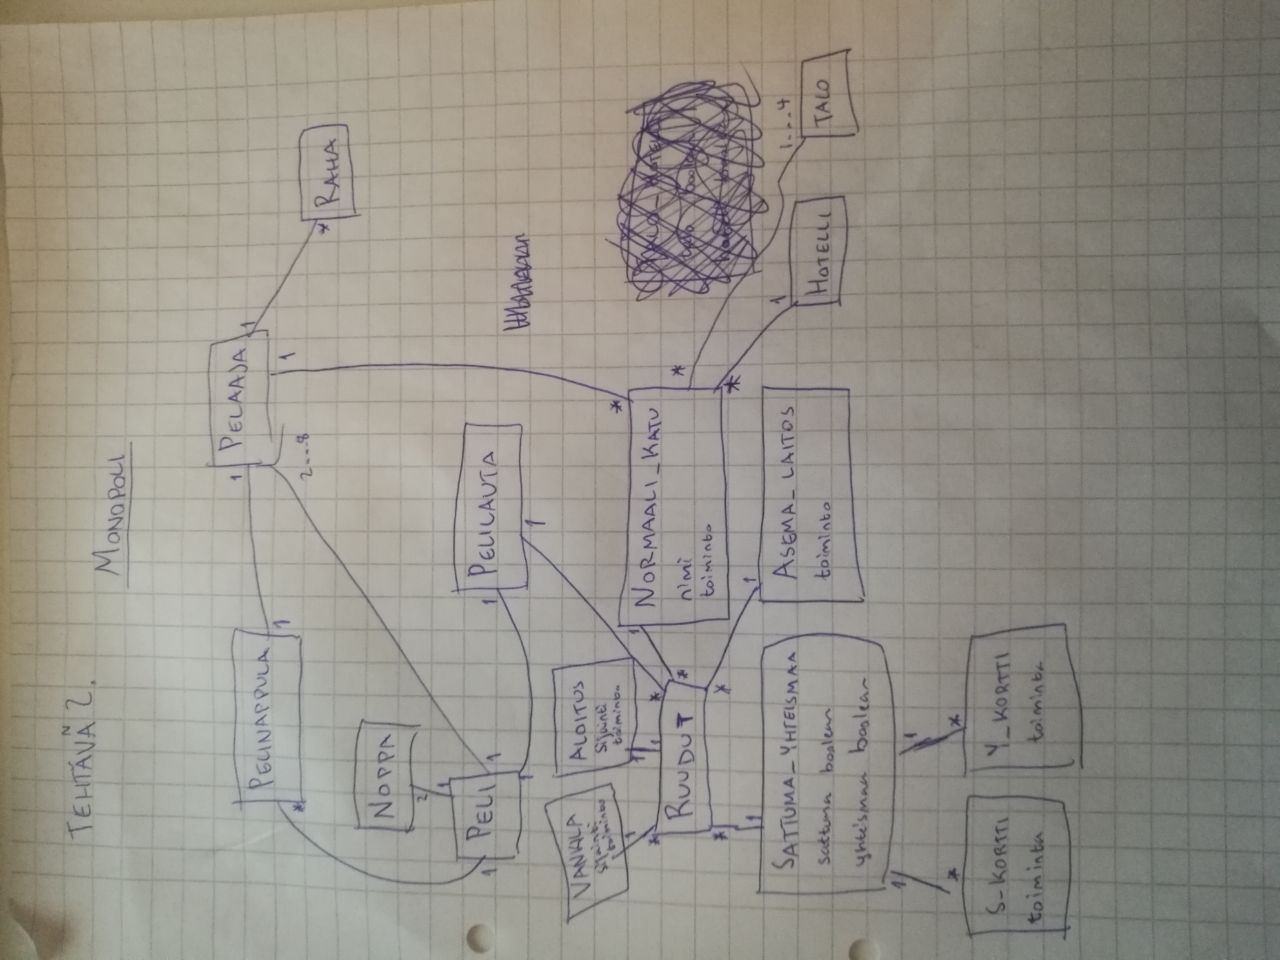 TEHTÄVÄ 2.
MONOPOLI
PELINAPPULA
1
*
1
PELAAJA
1
2...8
1
*
RAHA
NOPPA
2
1
1
PELI
1
1
1
PELILAUTA
1
VANKILA
sijainti
toiminto
1
ALOITUS
sijainti
toiminta
1
*
RUUDUT
1
*
*
*
*
1
*
NORMAALI_KATU
nimi
toiminto
*
*
1
SATTUMA_YHTEISMAA
sattuma boolean
yhteismaa boolean
1
ASEMA_LAITOS
toiminto
1
HOTELLI
1...4
TALO
1
*
1
*
S-KORTTI
toiminta
Y_KORTTI
toiminta